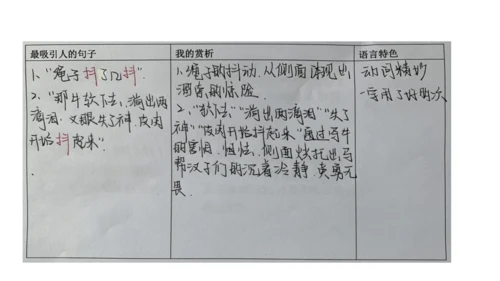 最吸引人的句子
我的赏析
语言特色
1、“绳子抖了几抖”.
2、“那牛软下去，淌出两
滴泪，双眼失了神，皮肉
开始抖起来”
1、绳子的抖动，从侧面体现出
溜索的惊险
2、“软下去”“淌出两滴泪”“失了
神”“皮肉开始抖起来”通过写牛
的害怕、胆怯，侧面烘托出马
帮汉子们的沉着冷静、英勇无
畏.
动词精妙